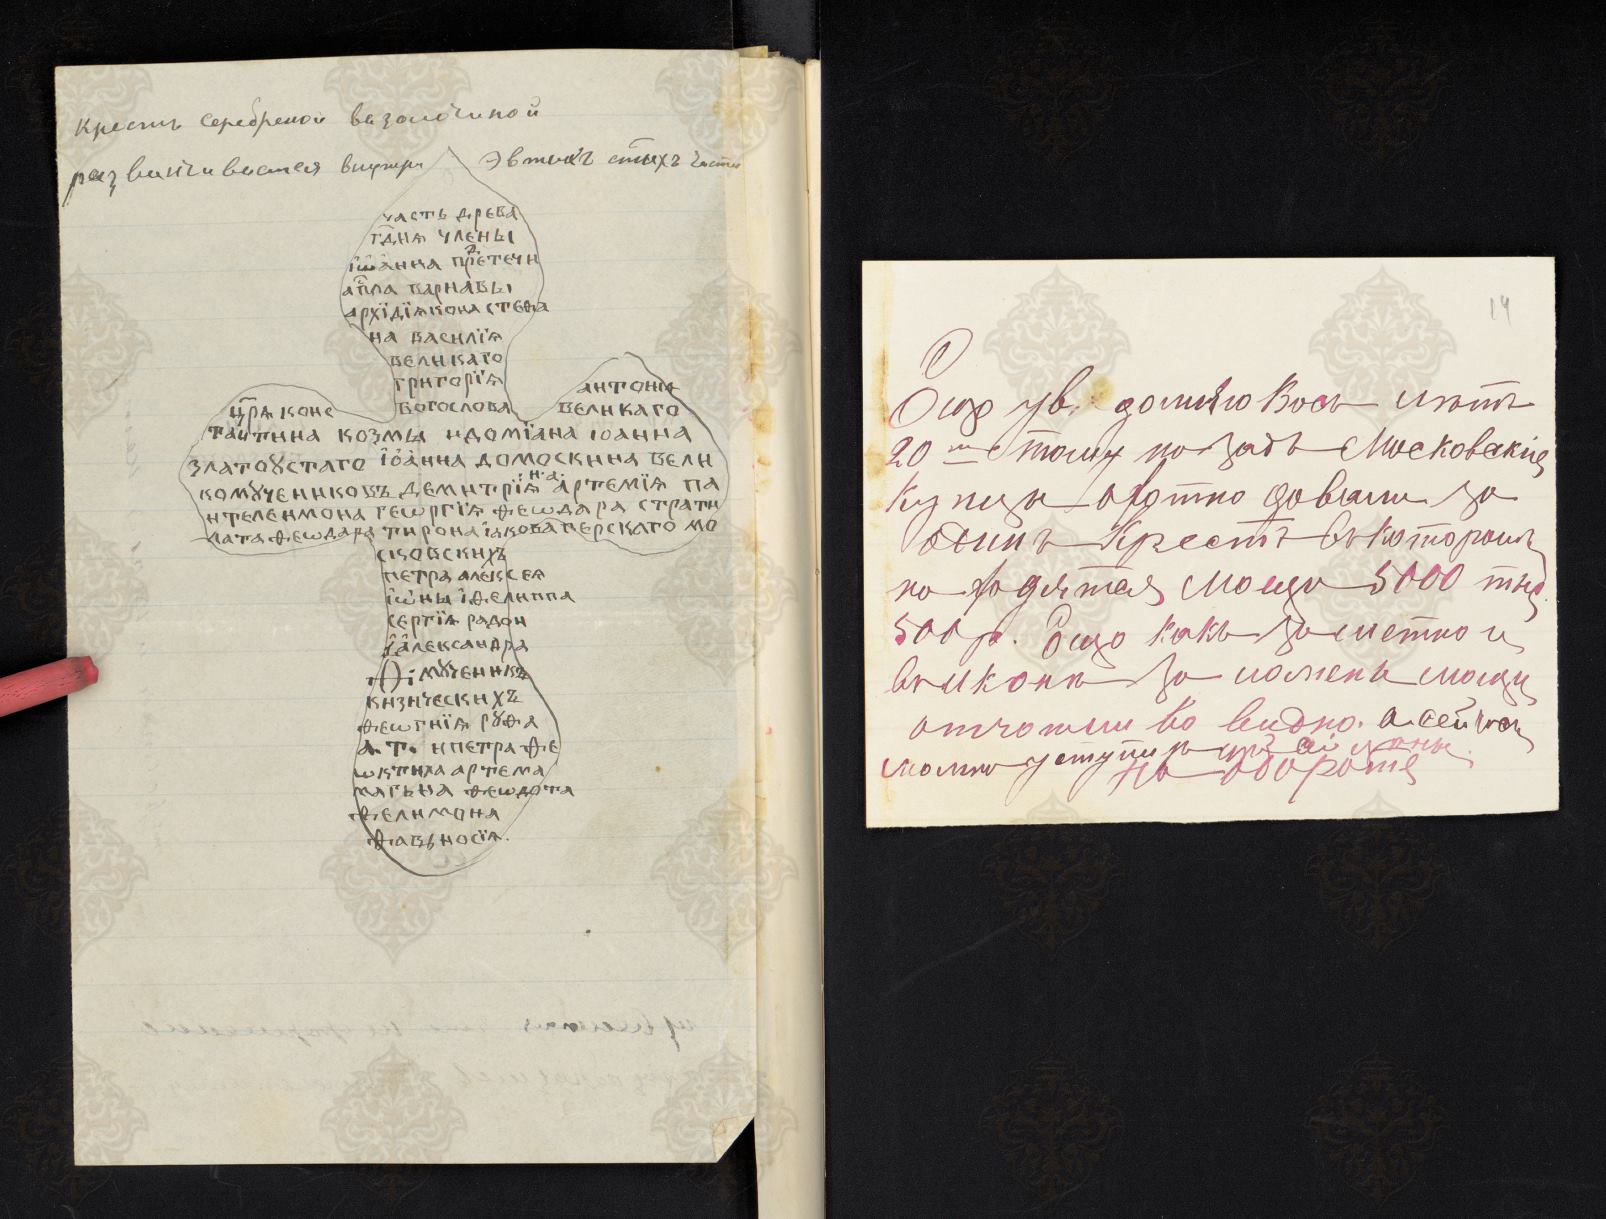 Крестъ серебреной вызолочиной
развинчивается внутри Э в тихъ стыхъ части
часть древа
гднѧ члены
іѡанна пртⷣетечи
апла варнавы
архїдїѧкона стефа
на василїѧ
великаго
григорїѧ
богослова
антониѧ
великаго
црѧ конс
таитина козмы и домїана іоанна
златоȣстаго іоанна домоскина вели
комȣчениковъ демитрїѧ и.а. артемїѧ па
нтелеимона геѡргїѧ феѡдара страти
лата феѡдара тирона іакова перскаго мо
сковскихъ
петра алексеѧ
іѡны і филиппа
сергїѧ радон
іалександра
Ѳ: мȣченикъ
кизическихъ
феѡгнїѧ рȣфа
а. т. и петра фе
ѡктиха артема
магьна феѡдота
филимона
фавьносїѧ.
14
Още ув. домляю Восъ лѣтъ
20ть тому на задъ Московскія
купцы охотно давали за
одинъ Крестъ в которомъ
на ходятся мощи 5000 тыс.
500 р. Още какъ заметно и
в иконе за ложены мощи
отчотли во видно. а сейчас
можно уступить изъ ей цоны.
На обороте